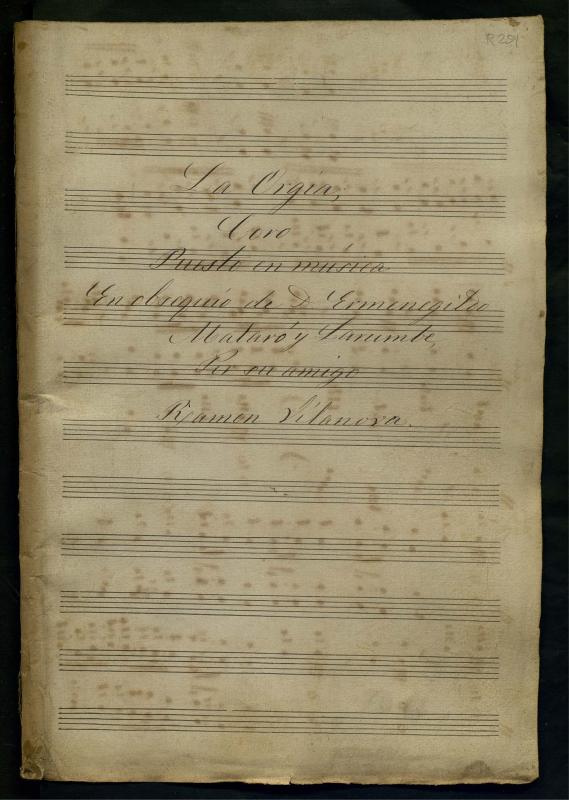 R 291
La Orgia,
Coro
Puesto en música
En obsequio de D. Ermenegildo
Mataró y Larumbe,
Por su amigo
Ramon Vilanova.